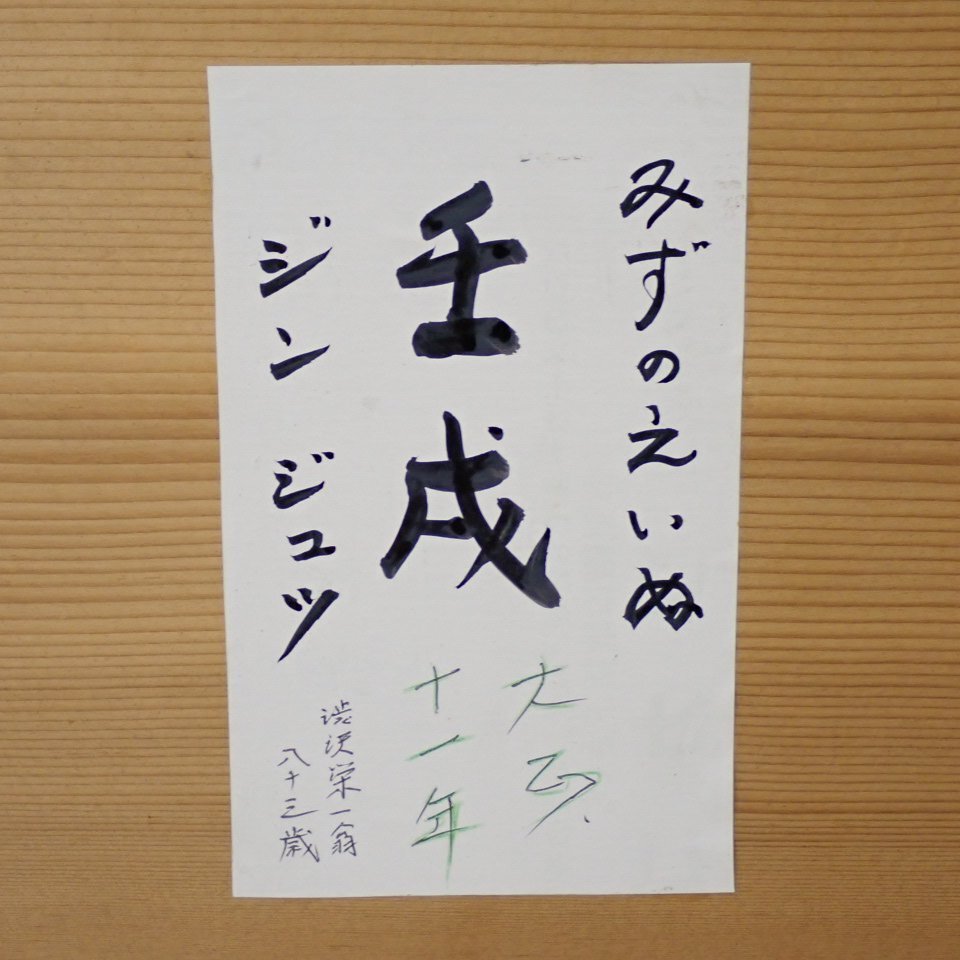 みずのえいぬ
壬戌
ジンジュツ
大正
十一年
渋沢栄一翁
八十三歳